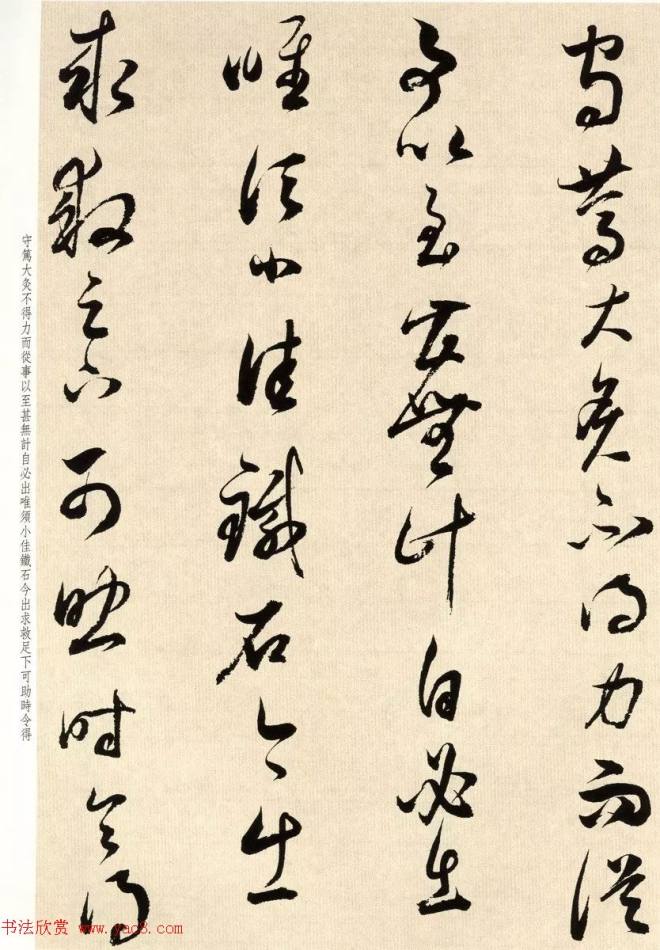 守篤大灸不得力而從
事以至甚無計自必出
唯須小佳鐵石今出
求救足下可助時令得
守篤大灸不得力而從事以至甚無計自必出唯須小佳鐵石今出求救足下可助時令得
书法欣赏 www.yac8.com